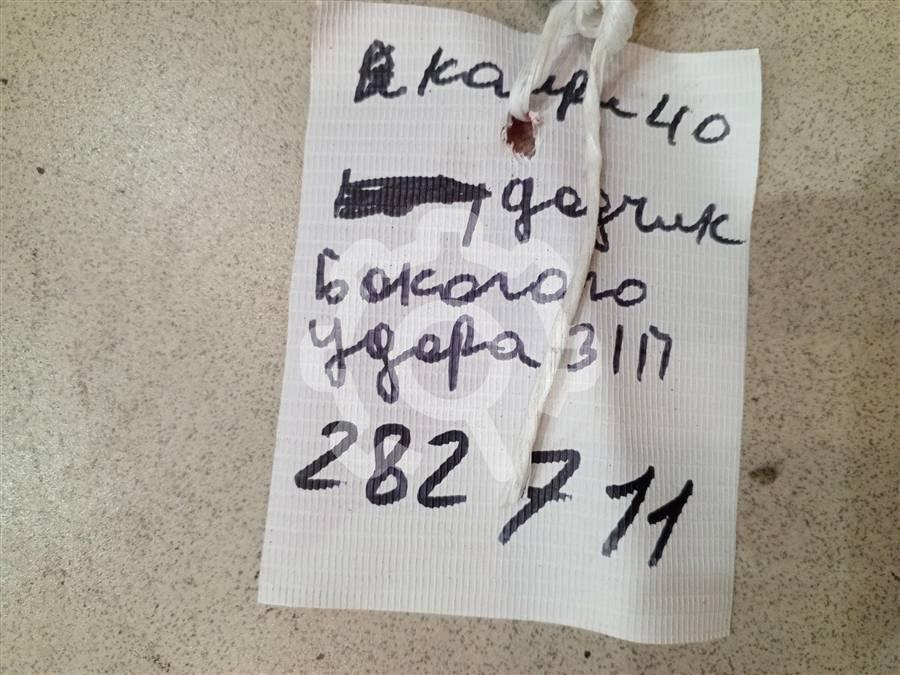 камри 40
датчик
Бокового
удара З/П
282711